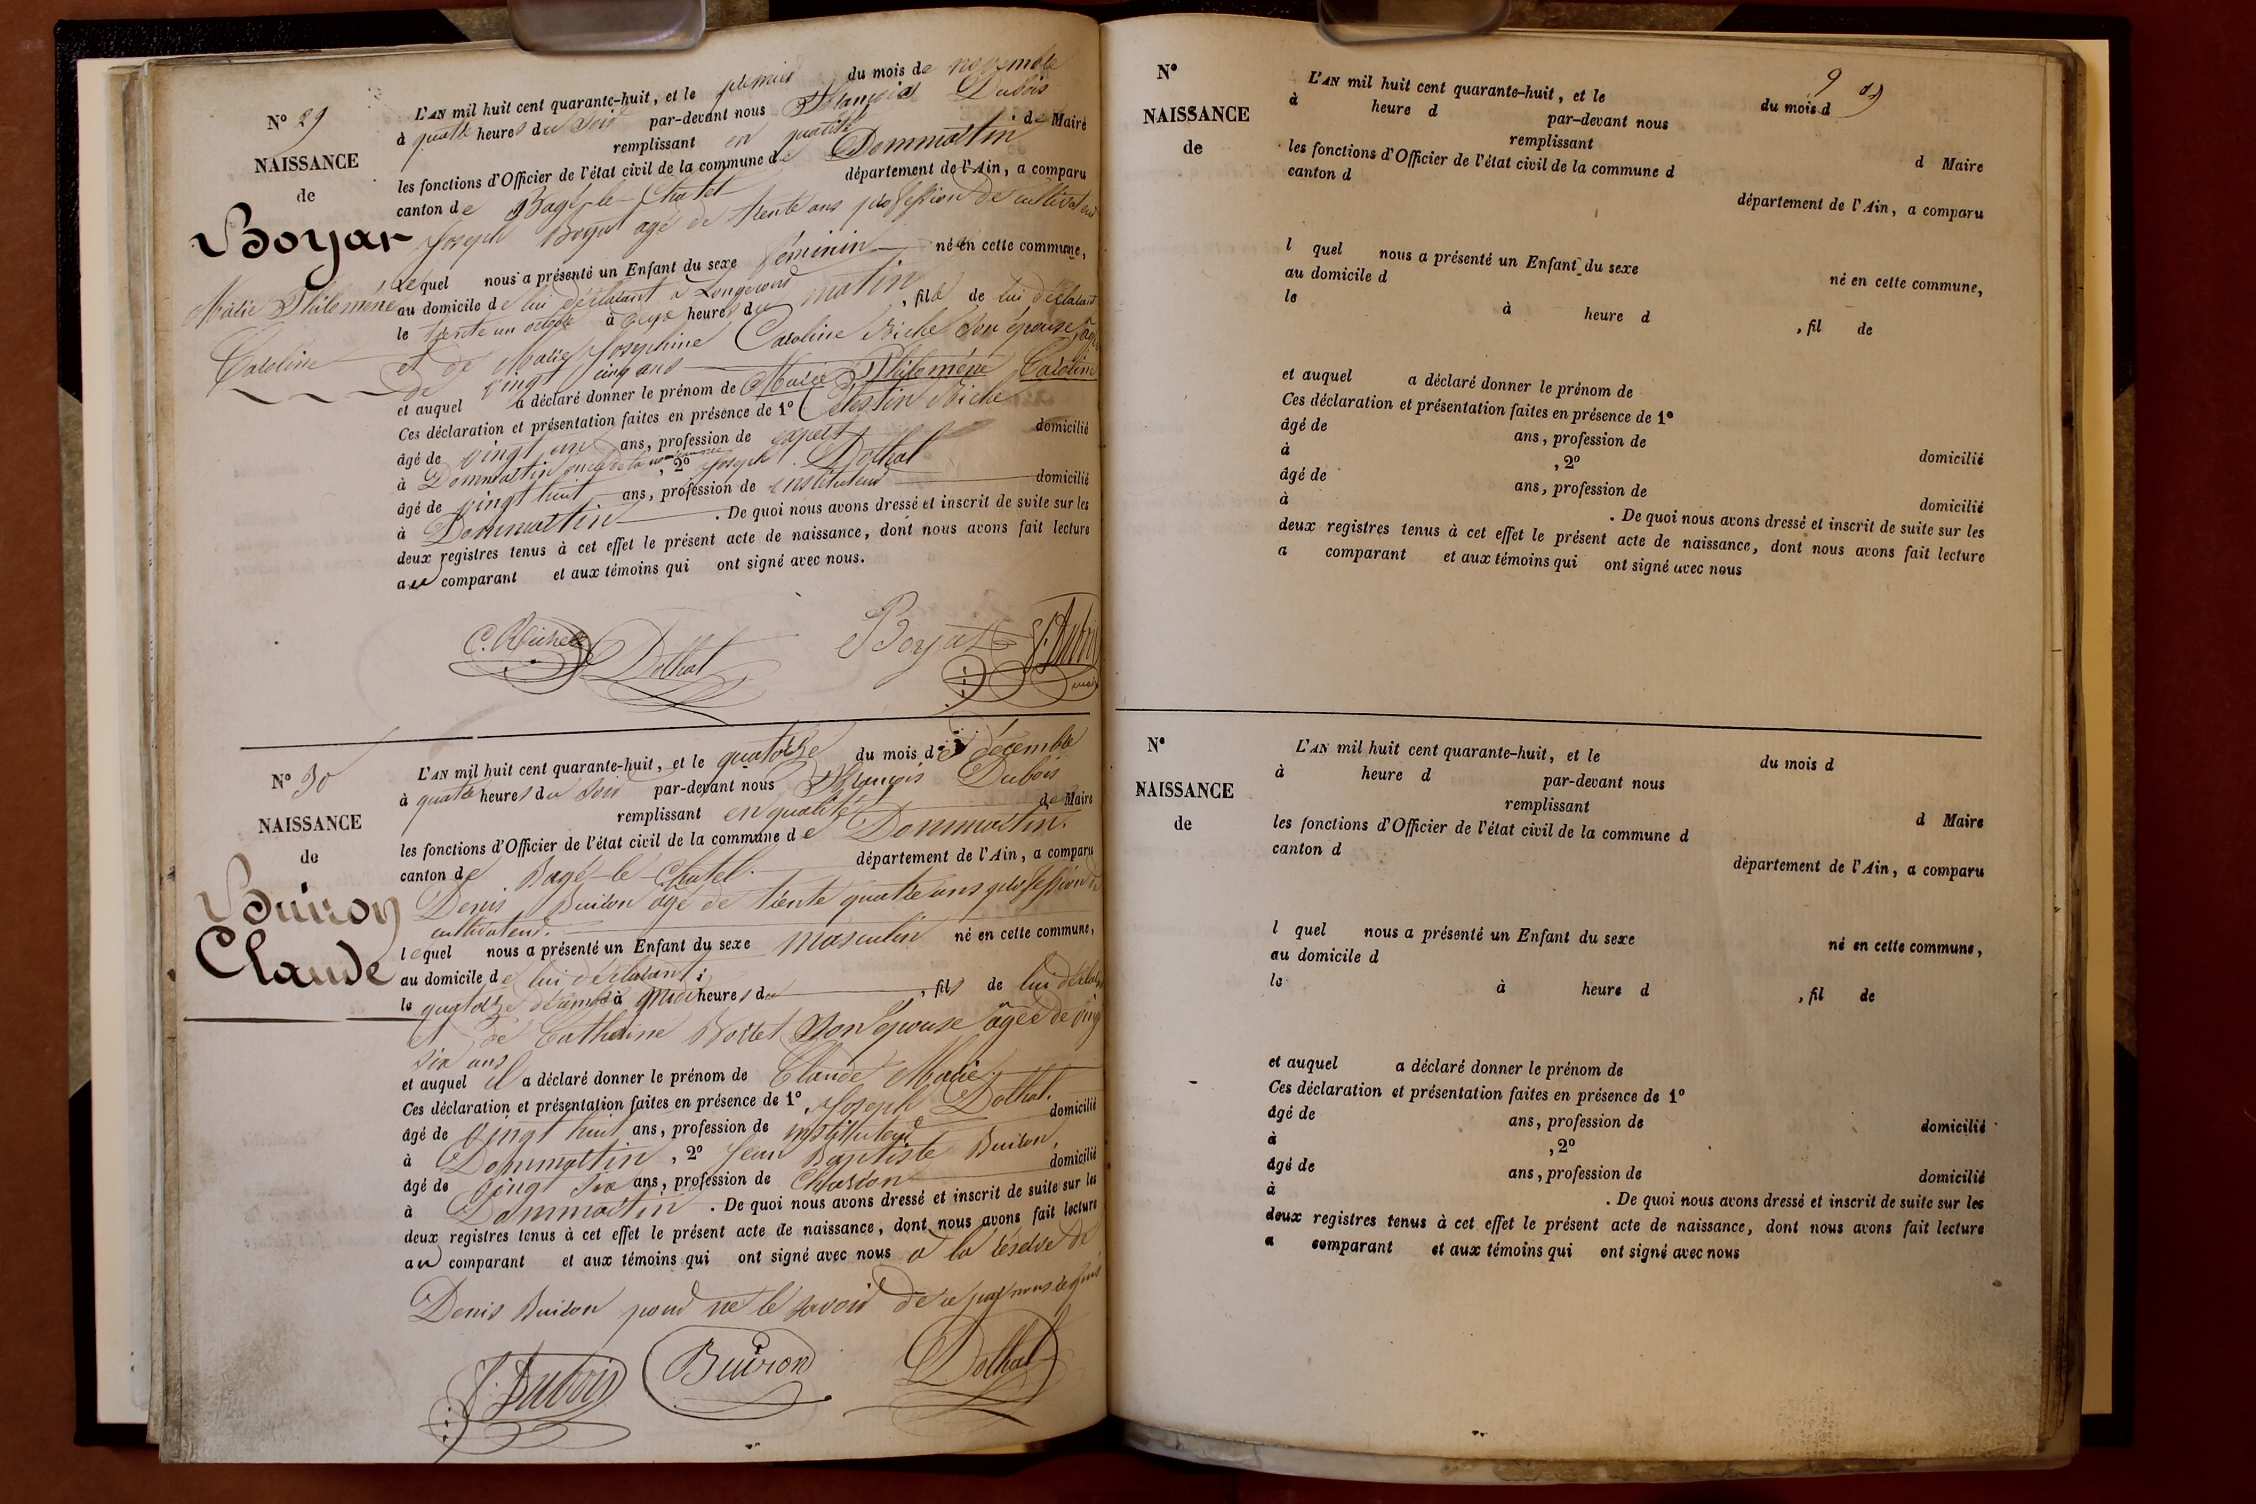 N° 29
NAISSANCE
de
Boyar
Marie Philomène
Caroline
L'AN mil huit cent quarante-huit, et le premier du mois de novembre
à quatre heures du soir par-devant nous François Dubois
remplissant en qualité de Maire
les fonctions d'Officier de l'état civil de la commune de Dommartin
canton de Bagé-le-Chatel département de l'Ain, a comparu
Joseph Boyat agé de trente ans profession de cultivateur
Lequel nous a présenté un Enfant du sexe féminin né en cette commune,
au domicile de lui déclarant à
le trente un octobre à heures du matin, fille de lui déclarant
et de Marie Joséphine Caroline Riche son épouse âgée
de vingt cinq ans
et auquel a déclaré donner le prénom de Marie Philomène Caroline
Ces déclaration et présentation faites en présence de 1° Célestin Riche
âgé de vingt ans, profession de expert domicilié
à Dommartin oncle de la , 2° Joseph Dothal
âgé de vingt huit ans, profession de instituteur domicilié
à Dommartin . De quoi nous avons dressé et inscrit de suite sur les
deux registres tenus à cet effet le présent acte de naissance, dont nous avons fait lecture
au comparant et aux témoins qui ont signé avec nous.
C. Riche Dothal Boyat F. Dubois
maire
N° 30
NAISSANCE
de
Buiron
Claude
L'AN mil huit cent quarante-huit, et le quatorze du mois de décembre
à quatre heures du soir par-devant nous François Dubois
remplissant en qualité de Maire
les fonctions d'Officier de l'état civil de la commune de Dommartin.
canton de Bagé-le-Chatel. département de l'Ain, a comparu
Denis Buiron agé de trente quatre ans profession de
cultivateur.
lequel nous a présenté un Enfant du sexe masculin né en cette commune,
au domicile de lui déclarant
le quatorze décembre à midi heures du , fils de lui déclarant
et de Catherine son épouse âgée de vingt
six ans
et auquel il a déclaré donner le prénom de Claude Marie.
Ces déclaration et présentation faites en présence de 1° Joseph Dothal.
âgé de vingt huit ans, profession de instituteur domicilié
à Dommartin, 2° Jean Baptiste Buiron,
âgé de vingt six ans, profession de Charron domicilié
à Dommartin . De quoi nous avons dressé et inscrit de suite sur les
deux registres tenus à cet effet le présent acte de naissance, dont nous avons fait lecture
au comparant et aux témoins qui ont signé avec nous à la réserve de
Denis Buiron pour ne le savoir de ce par nous requis
F. Dubois Buiron Dothal
N°
NAISSANCE
de
L'AN mil huit cent quarante-huit, et le du mois d
à heure d par-devant nous
remplissant d Maire
les fonctions d'Officier de l'état civil de la commune d
canton d département de l'Ain, a comparu
l quel nous a présenté un Enfant du sexe né en cette commune,
au domicile d
le à heure d , fil de
et auquel a déclaré donner le prénom de
Ces déclaration et présentation faites en présence de 1°
âgé de ans, profession de domicilié
à , 2°
âgé de ans, profession de domicilié
à . De quoi nous avons dressé et inscrit de suite sur les
deux registres tenus à cet effet le présent acte de naissance, dont nous avons fait lecture
a comparant et aux témoins qui ont signé avec nous
N°
NAISSANCE
de
L'AN mil huit cent quarante-huit, et le du mois d
à heure d par-devant nous
remplissant d Maire
les fonctions d'Officier de l'état civil de la commune d
canton d département de l'Ain, a comparu
l quel nous a présenté un Enfant du sexe né en cette commune,
au domicile d
le à heure d , fil de
et auquel a déclaré donner le prénom de
Ces déclaration et présentation faites en présence de 1°
âgé de ans, profession de domicilié
à , 2°
âgé de ans, profession de domicilié
à . De quoi nous avons dressé et inscrit de suite sur les
deux registres tenus à cet effet le présent acte de naissance, dont nous avons fait lecture
a comparant et aux témoins qui ont signé avec nous